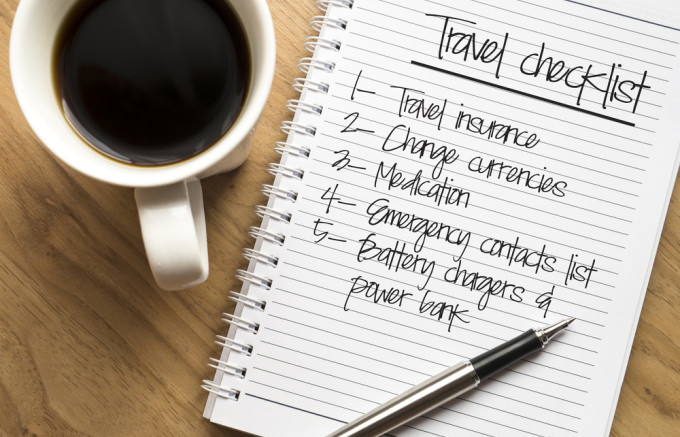 Travel checklist
1- Travel insurance
2- Change currencies
3- Medication
4- Emergency contacts list
5- Battery chargers &
power bank